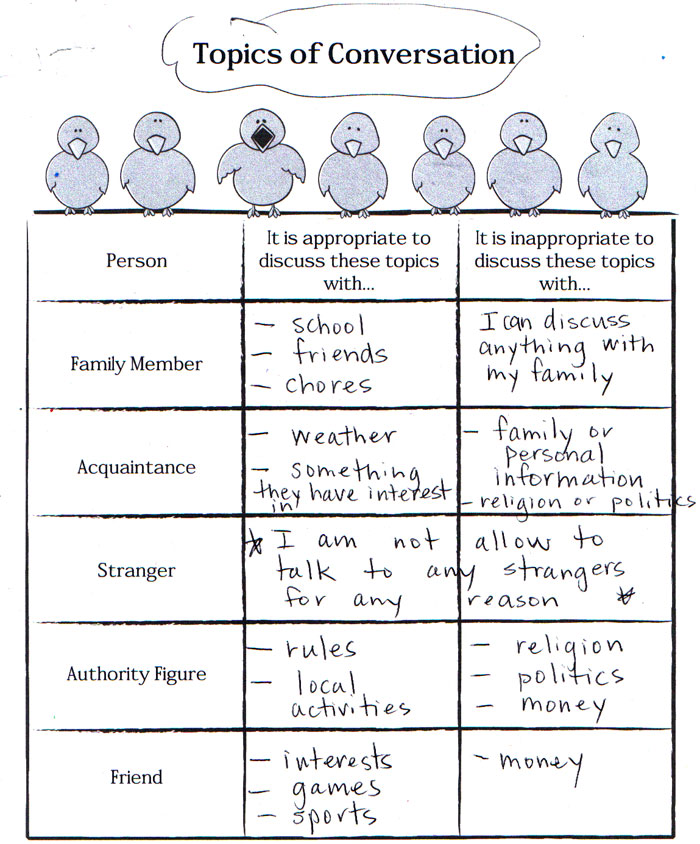 Topics of Conversation
Person
It is appropriate to
discuss these topics
with...
It is inappropriate to
discuss these topics
with...
Family Member
– school
– friends
– chores
I can discuss
anything with
my family
Acquaintance
– weather
– something
they have interest
in
– family or
personal
information
– religion or politics
Stranger
* I am not allow to
talk to any strangers
for any reason *
Authority Figure
– rules
– local
activities
– religion
– politics
– money
Friend
– interests
– games
– sports
– money